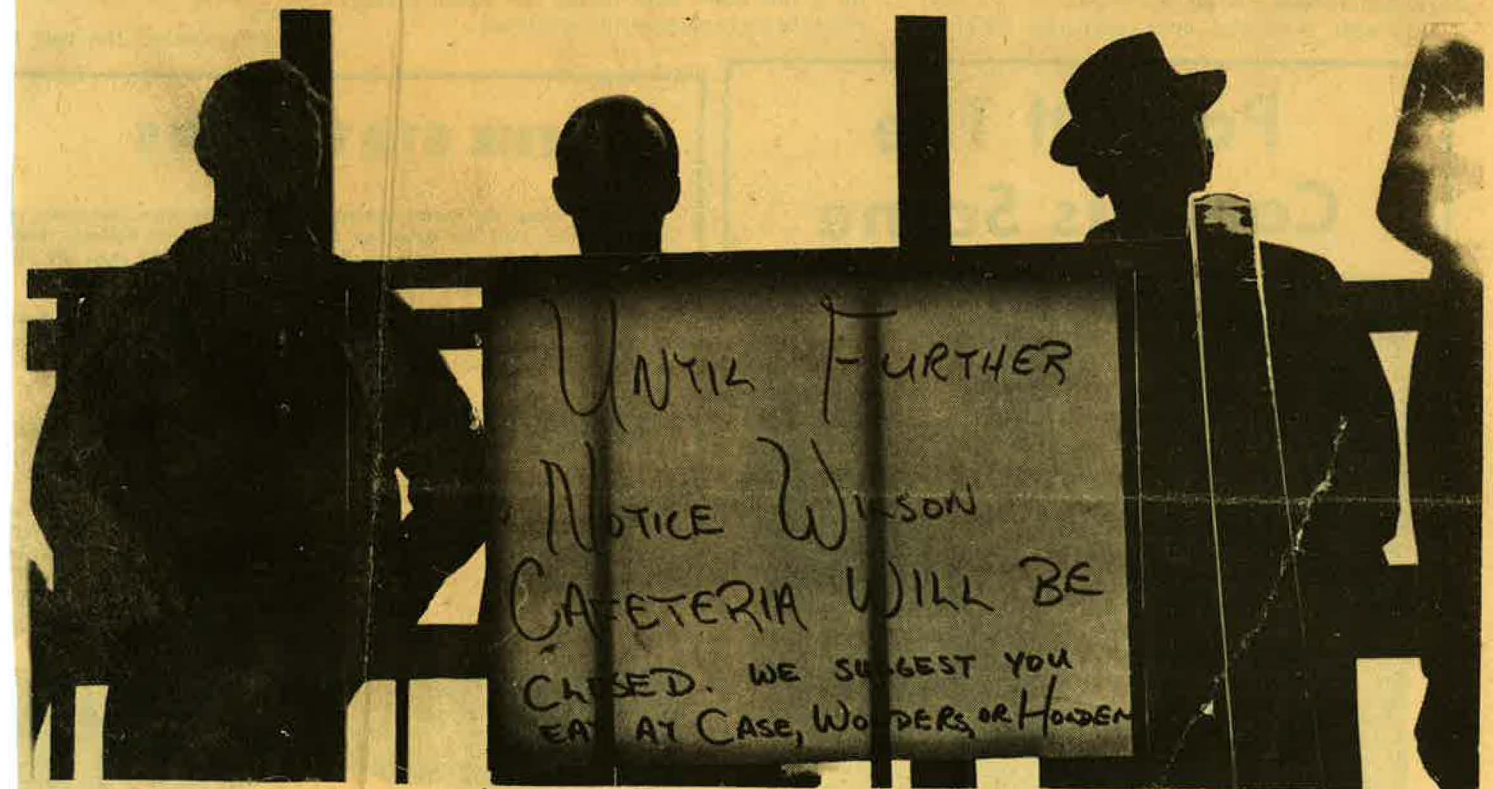 UNTIL FURTHER
NOTICE WILSON
CAFETERIA WILL BE
CLOSED. WE SUGGEST YOU
EAT AT CASE, WONDERS, OR HOLDEN